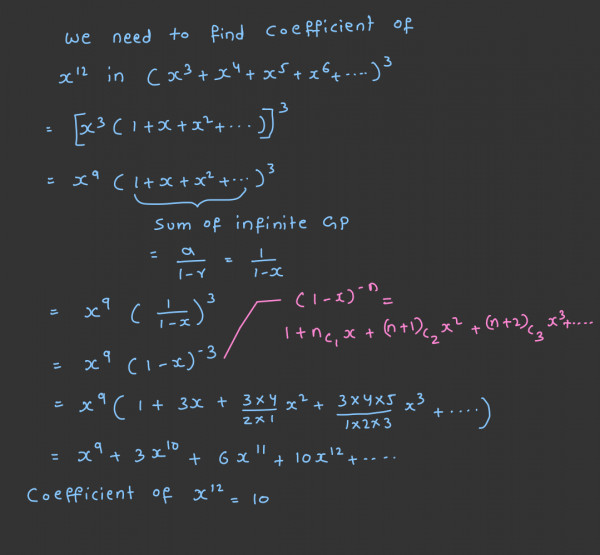 we need to find coefficient of
x¹² in (x³ + x⁴ + x⁵ + x⁶ + ....)³
= [x³ (1 + x + x² + ...)]³
= x⁹ (1 + x + x² + ...)³
Sum of infinite GP
= a/(1-r) = 1/(1-x)
= x⁹ (1/(1-x))³
(1-x)⁻ⁿ =
1 + nC₁ x + (n+1)C₂ x² + (n+2)C₃ x³ + ....
= x⁹ (1-x)⁻³
= x⁹ (1 + 3x + (3×4)/(2×1) x² + (3×4×5)/(1×2×3) x³ + ....)
= x⁹ + 3x¹⁰ + 6x¹¹ + 10x¹² + ....
Coefficient of x¹² = 10